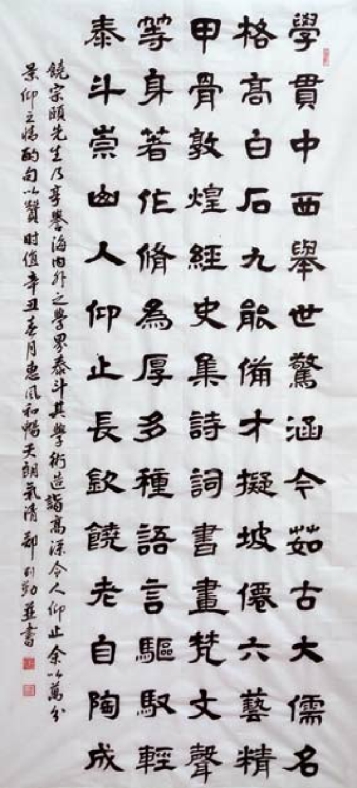 學貫中西舉世驚涵今茹古大儒名
格高白石九能備才擬坡僊六藝精
甲骨敦煌經史集詩詞書畫梵文聲
等身著作脩為厚多種語言驅馭輕
泰斗崇山人仰止長欽饒老自陶成
饒宗頤先生乃享譽海內外之學界泰斗其學術造詣高深令人仰止余以萬分
景仰之情酌句以贊時值辛丑春月惠風和暢天朗氣清 鄭 勤並書